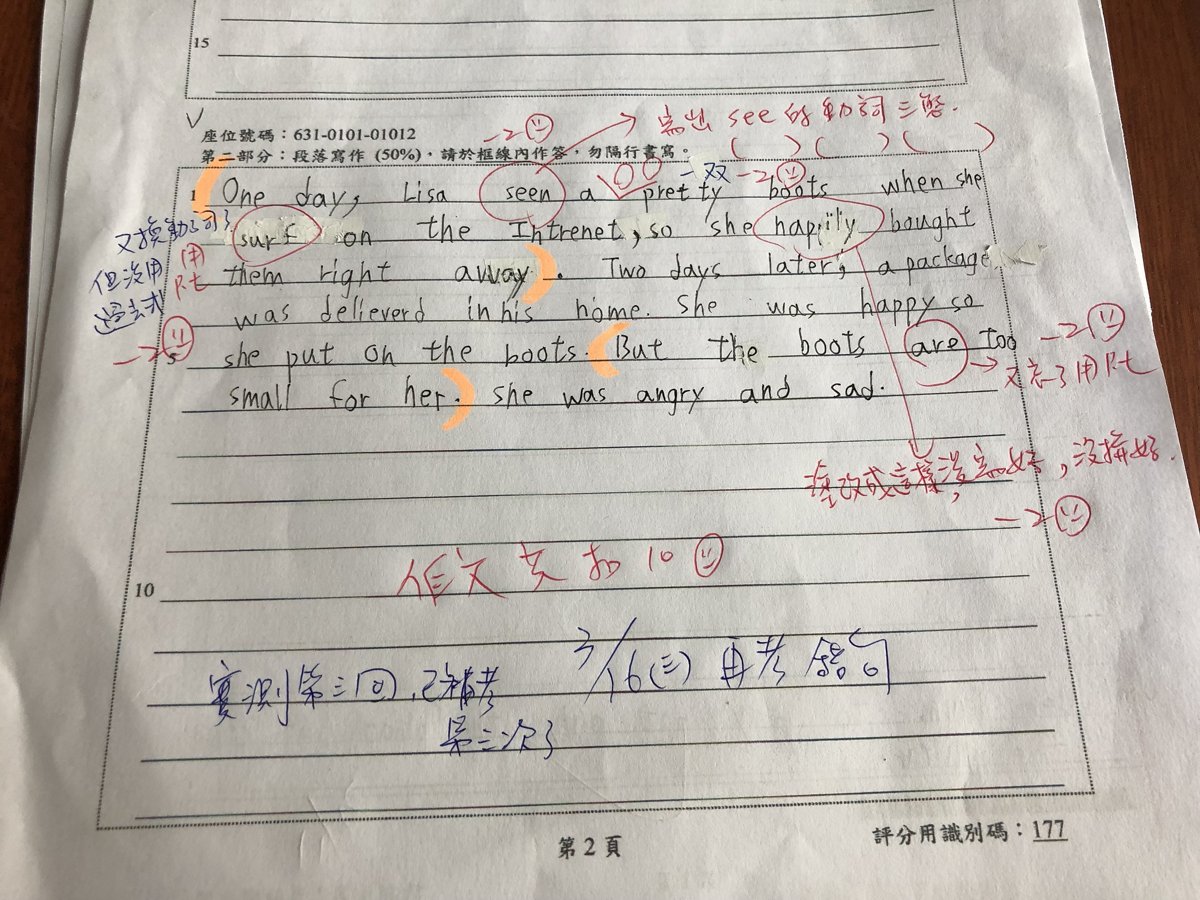 15
座位號碼：631-0101-01012
-2
寫出 see 的動詞三態.
第二部分：段落寫作 (50%)，請於框線內作答，勿隔行書寫。
( ) ( ) ( )
一双 -2
1 One day, Lisa seen a pretty boots when she
又換動詞了
但沒用
過去式
用
p.t
-2
surf on the Intrenet, so she happily bought
them right away. Two days later, a package
was delieverd in his home. She was happy so
5 she put on the boots. But the boots are too
-2
又忘了用 p.t
small for her. she was angry and sad.
塗改成這樣沒寫好，沒拼好.
-2
作文共扣10
10
實測第三回，已補考
第三次了
3/16(三) 再考 錯句
第 2 頁
評分用識別碼：177